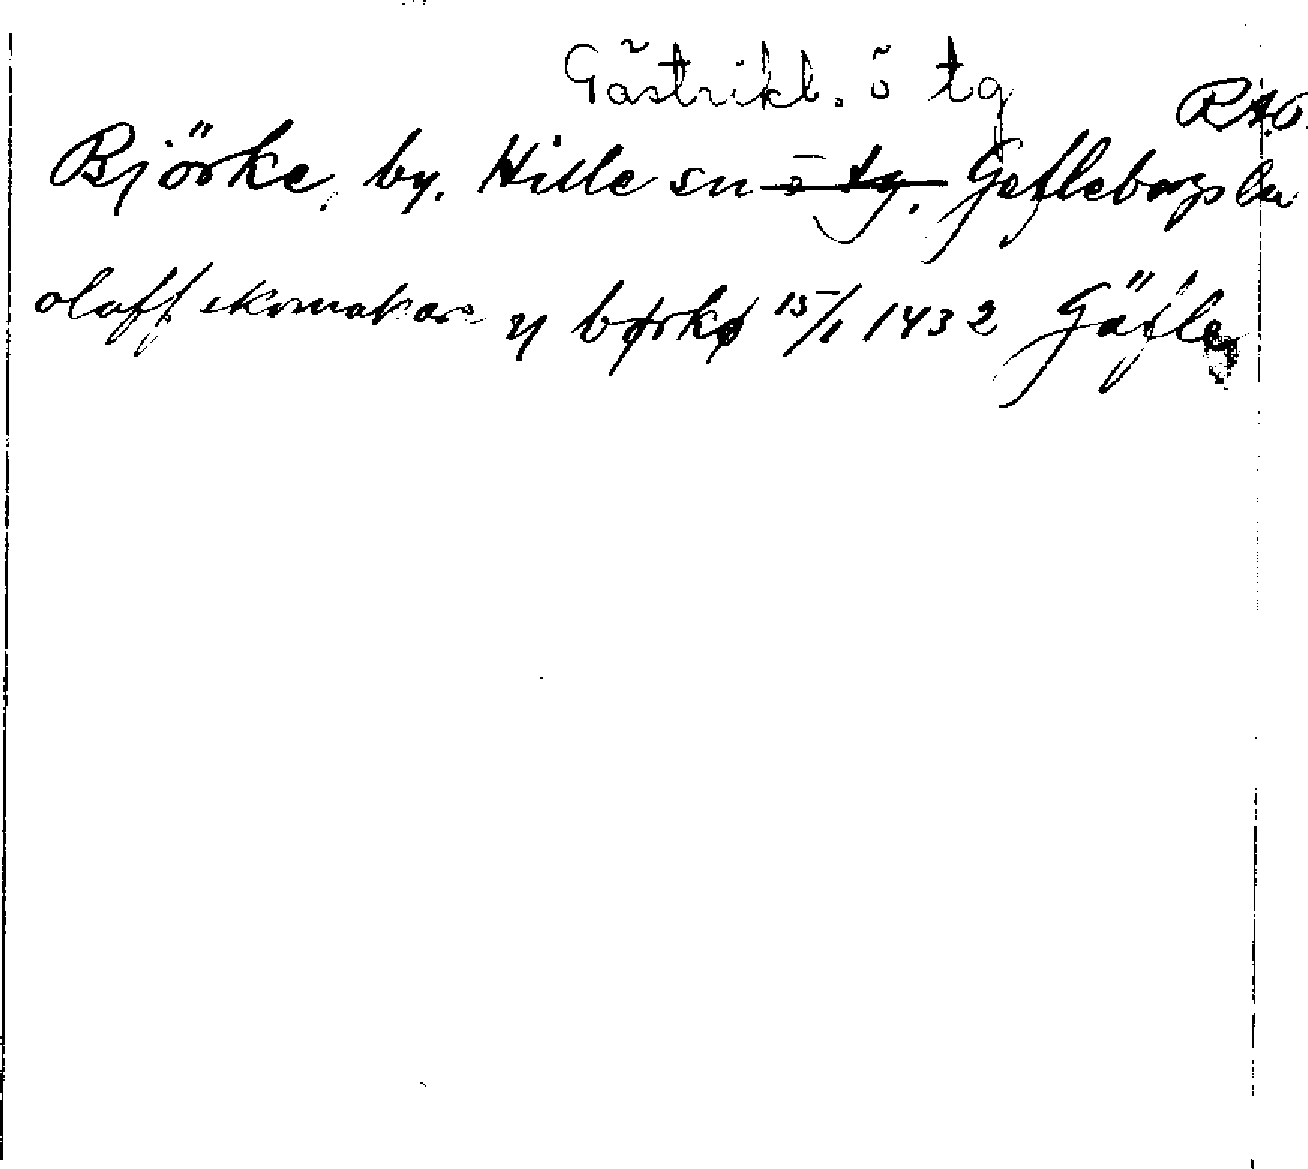 Gästrikl. ö tg
R.A.O.
Björke, by. Hille sn ö tg. Gefleborgs län
olaff skomakare y børkø 15/1 1432 Gäfle